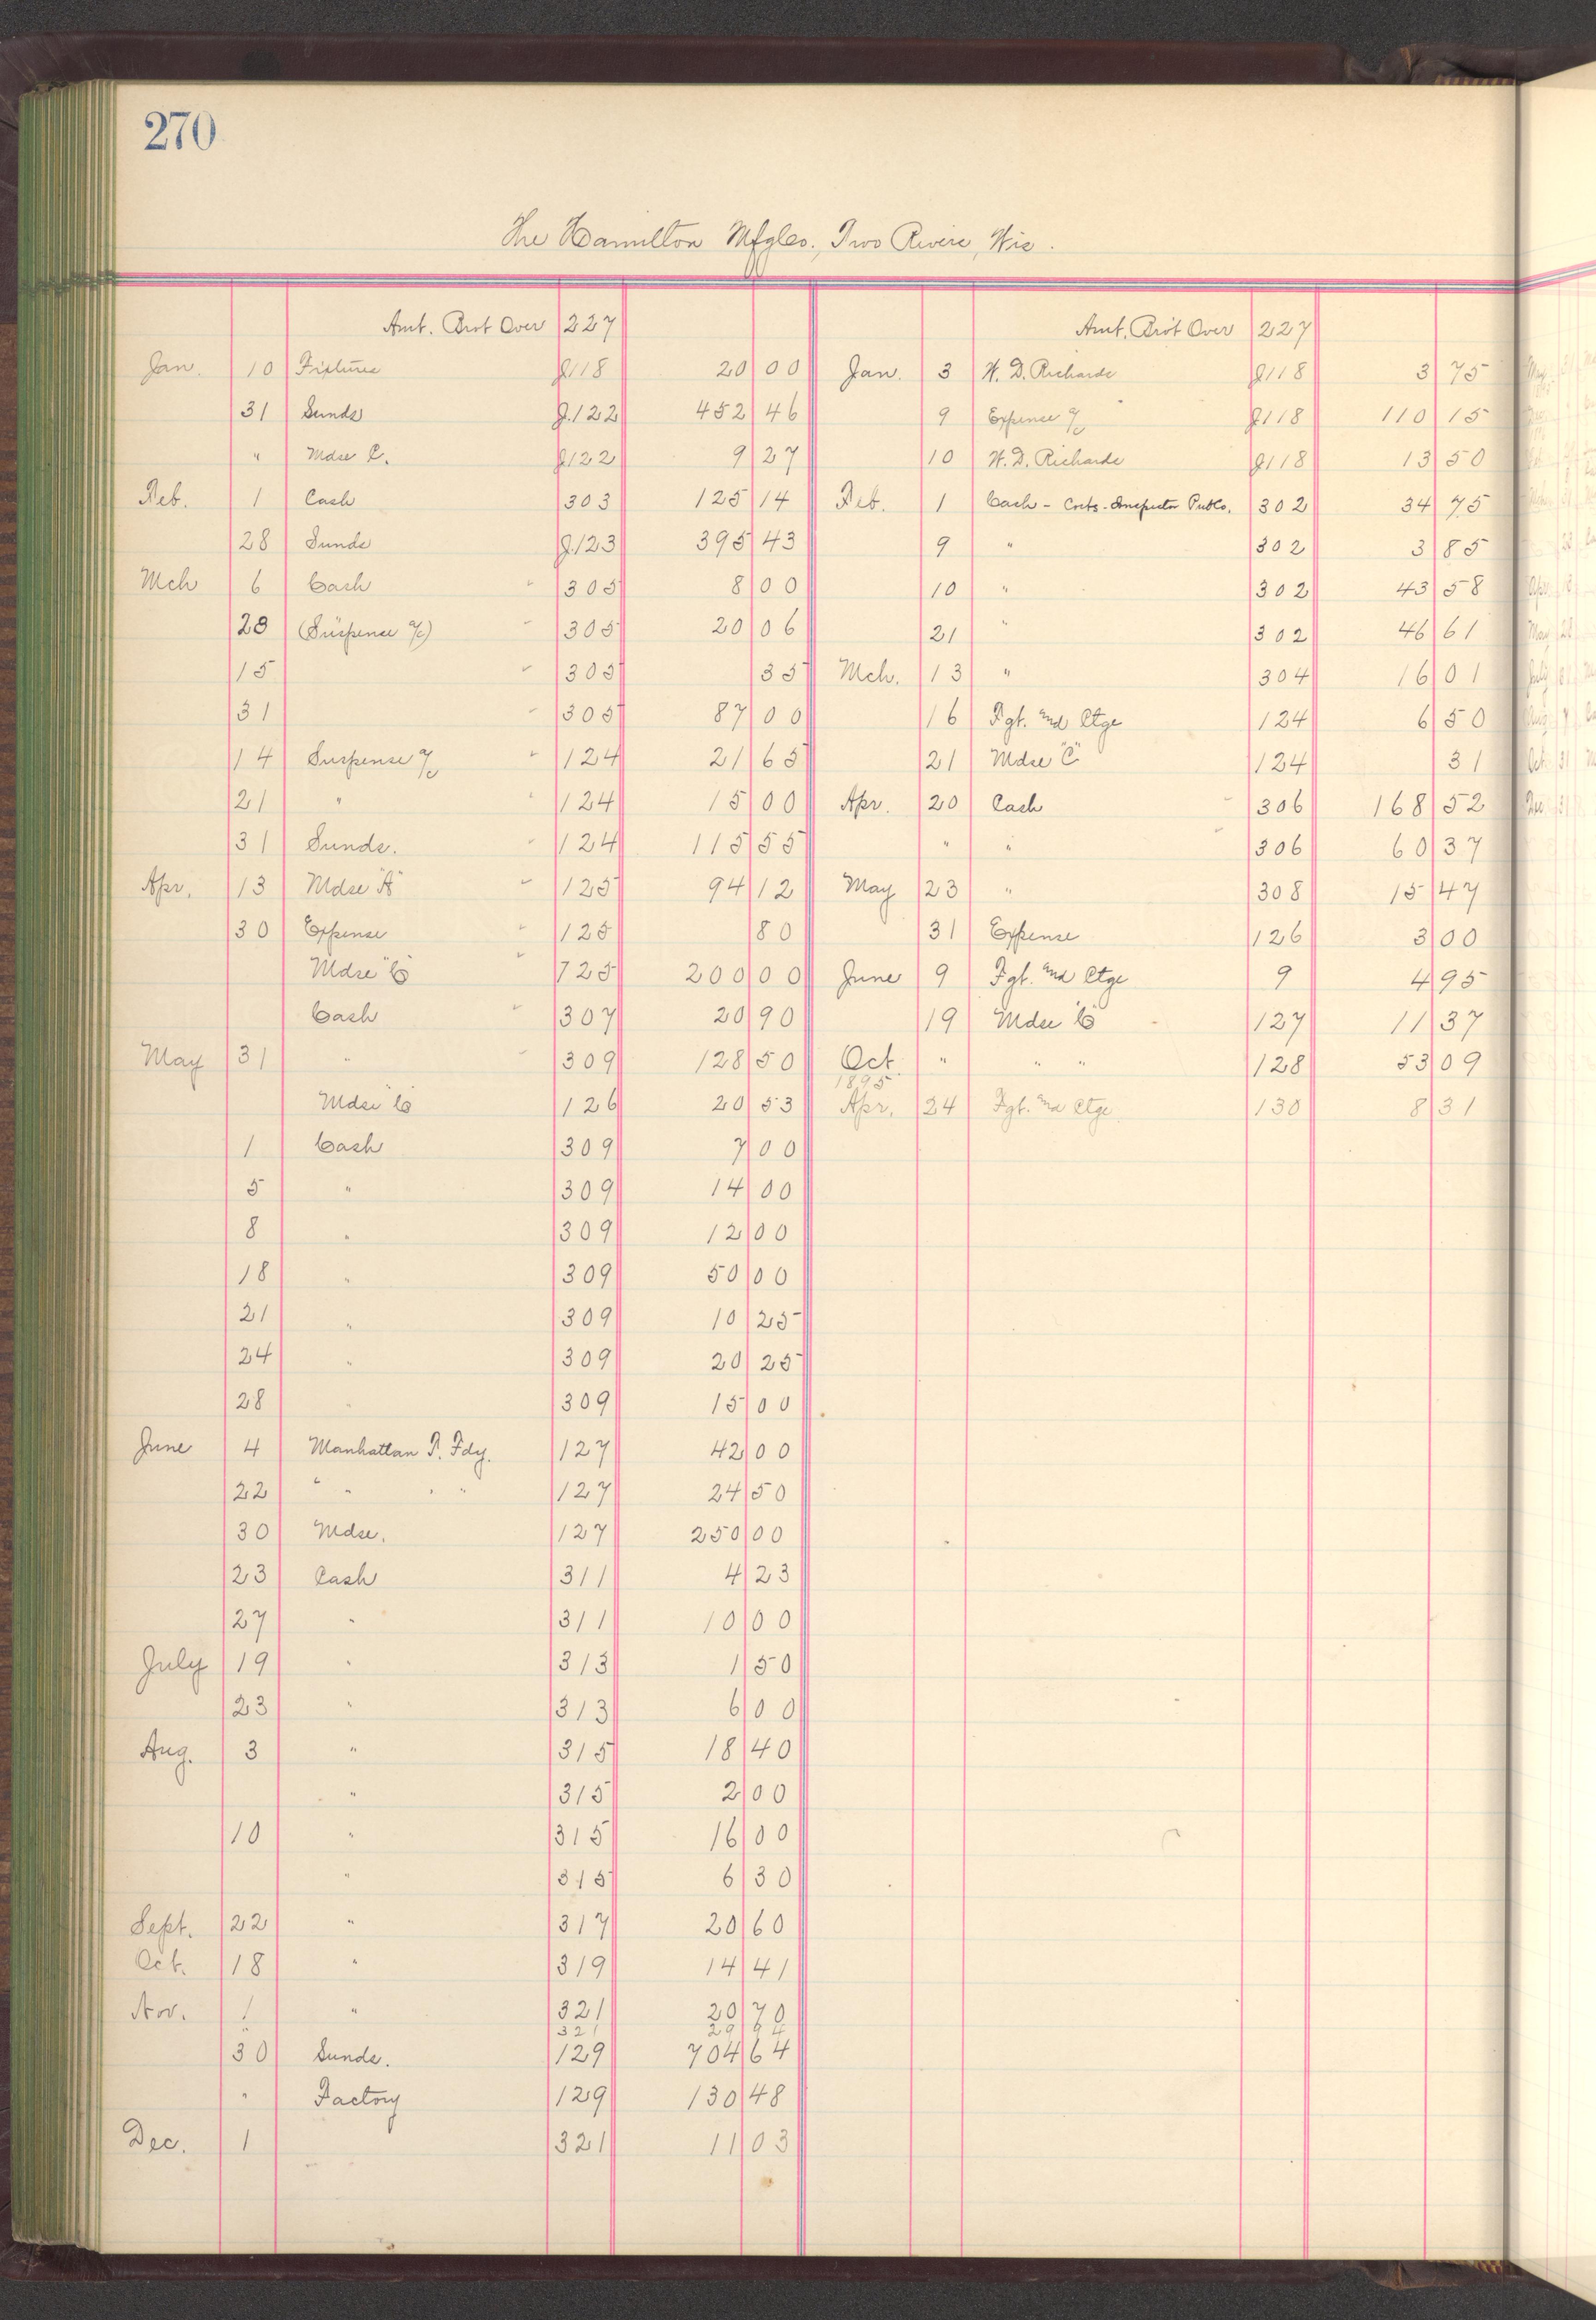 270
The Hamilton Mfg Co., Two Rivers, Wis.
Amt. Brot Over 227
Jan. 10 Fixtures J118 20 00
31 Sunds J.122 452 46
" Mdse C. J122 9 27
Feb. 1 Cash 303 125 14
28 Sunds J.123 395 43
Mch 6 Cash " 305 8 00
28 (Suspense a/c) " 305 20 06
15 " 305 35
31 " 305 87 00
14 Suspense a/c " 124 21 65
21 " " 124 15 00
31 Sunds. " 124 115 55
Apr. 13 Mdse "A" " 125 94 12
30 Expense " 125 80
Mdse "C" " 125 200 00
Cash " 307 20 90
May 31 " " 309 128 50
Mdse "C" 126 20 53
1 Cash 309 7 00
5 " 309 14 00
8 " 309 12 00
18 " 309 50 00
21 " 309 10 25
24 " 309 20 25
28 " 309 15 00
June 4 Manhattan T. Fdy. 127 42 00
22 " " " " 127 24 50
30 Mdse. 127 250 00
23 Cash 311 4 23
27 " 311 10 00
July 19 " 313 1 50
23 " 313 6 00
Aug. 3 " 315 18 40
" 315 2 00
10 " 315 16 00
" 315 6 30
Sept. 22 " 317 20 60
Oct. 18 " 319 14 41
Nov. 1 " 321 20 70
" 321 29 94
30 Sunds. 129 704 64
" Factory 129 130 48
Dec. 1 321 11 03
Amt. Brot Over 227
Jan. 3 H. D. Richards J118 3 75
9 Expense a/c J118 110 15
10 H. D. Richards J118 13 50
Feb. 1 Cash - Cocts - Inspector Pub Co. 302 34 75
9 " 302 3 85
10 " 302 43 58
21 " 302 46 61
Mch. 13 " 304 16 01
16 Fgt. and Ctge 124 6 50
21 Mdse "C" 124 31
Apr. 20 Cash 306 168 52
" " 306 60 37
May 23 " 308 15 47
31 Expense 126 3 00
June 9 Fgt. and Ctge 9 4 95
19 Mdse "C" 127 11 37
Oct. " " " 128 53 09
1895
Apr. 24 Fgt. and Ctge 130 8 31